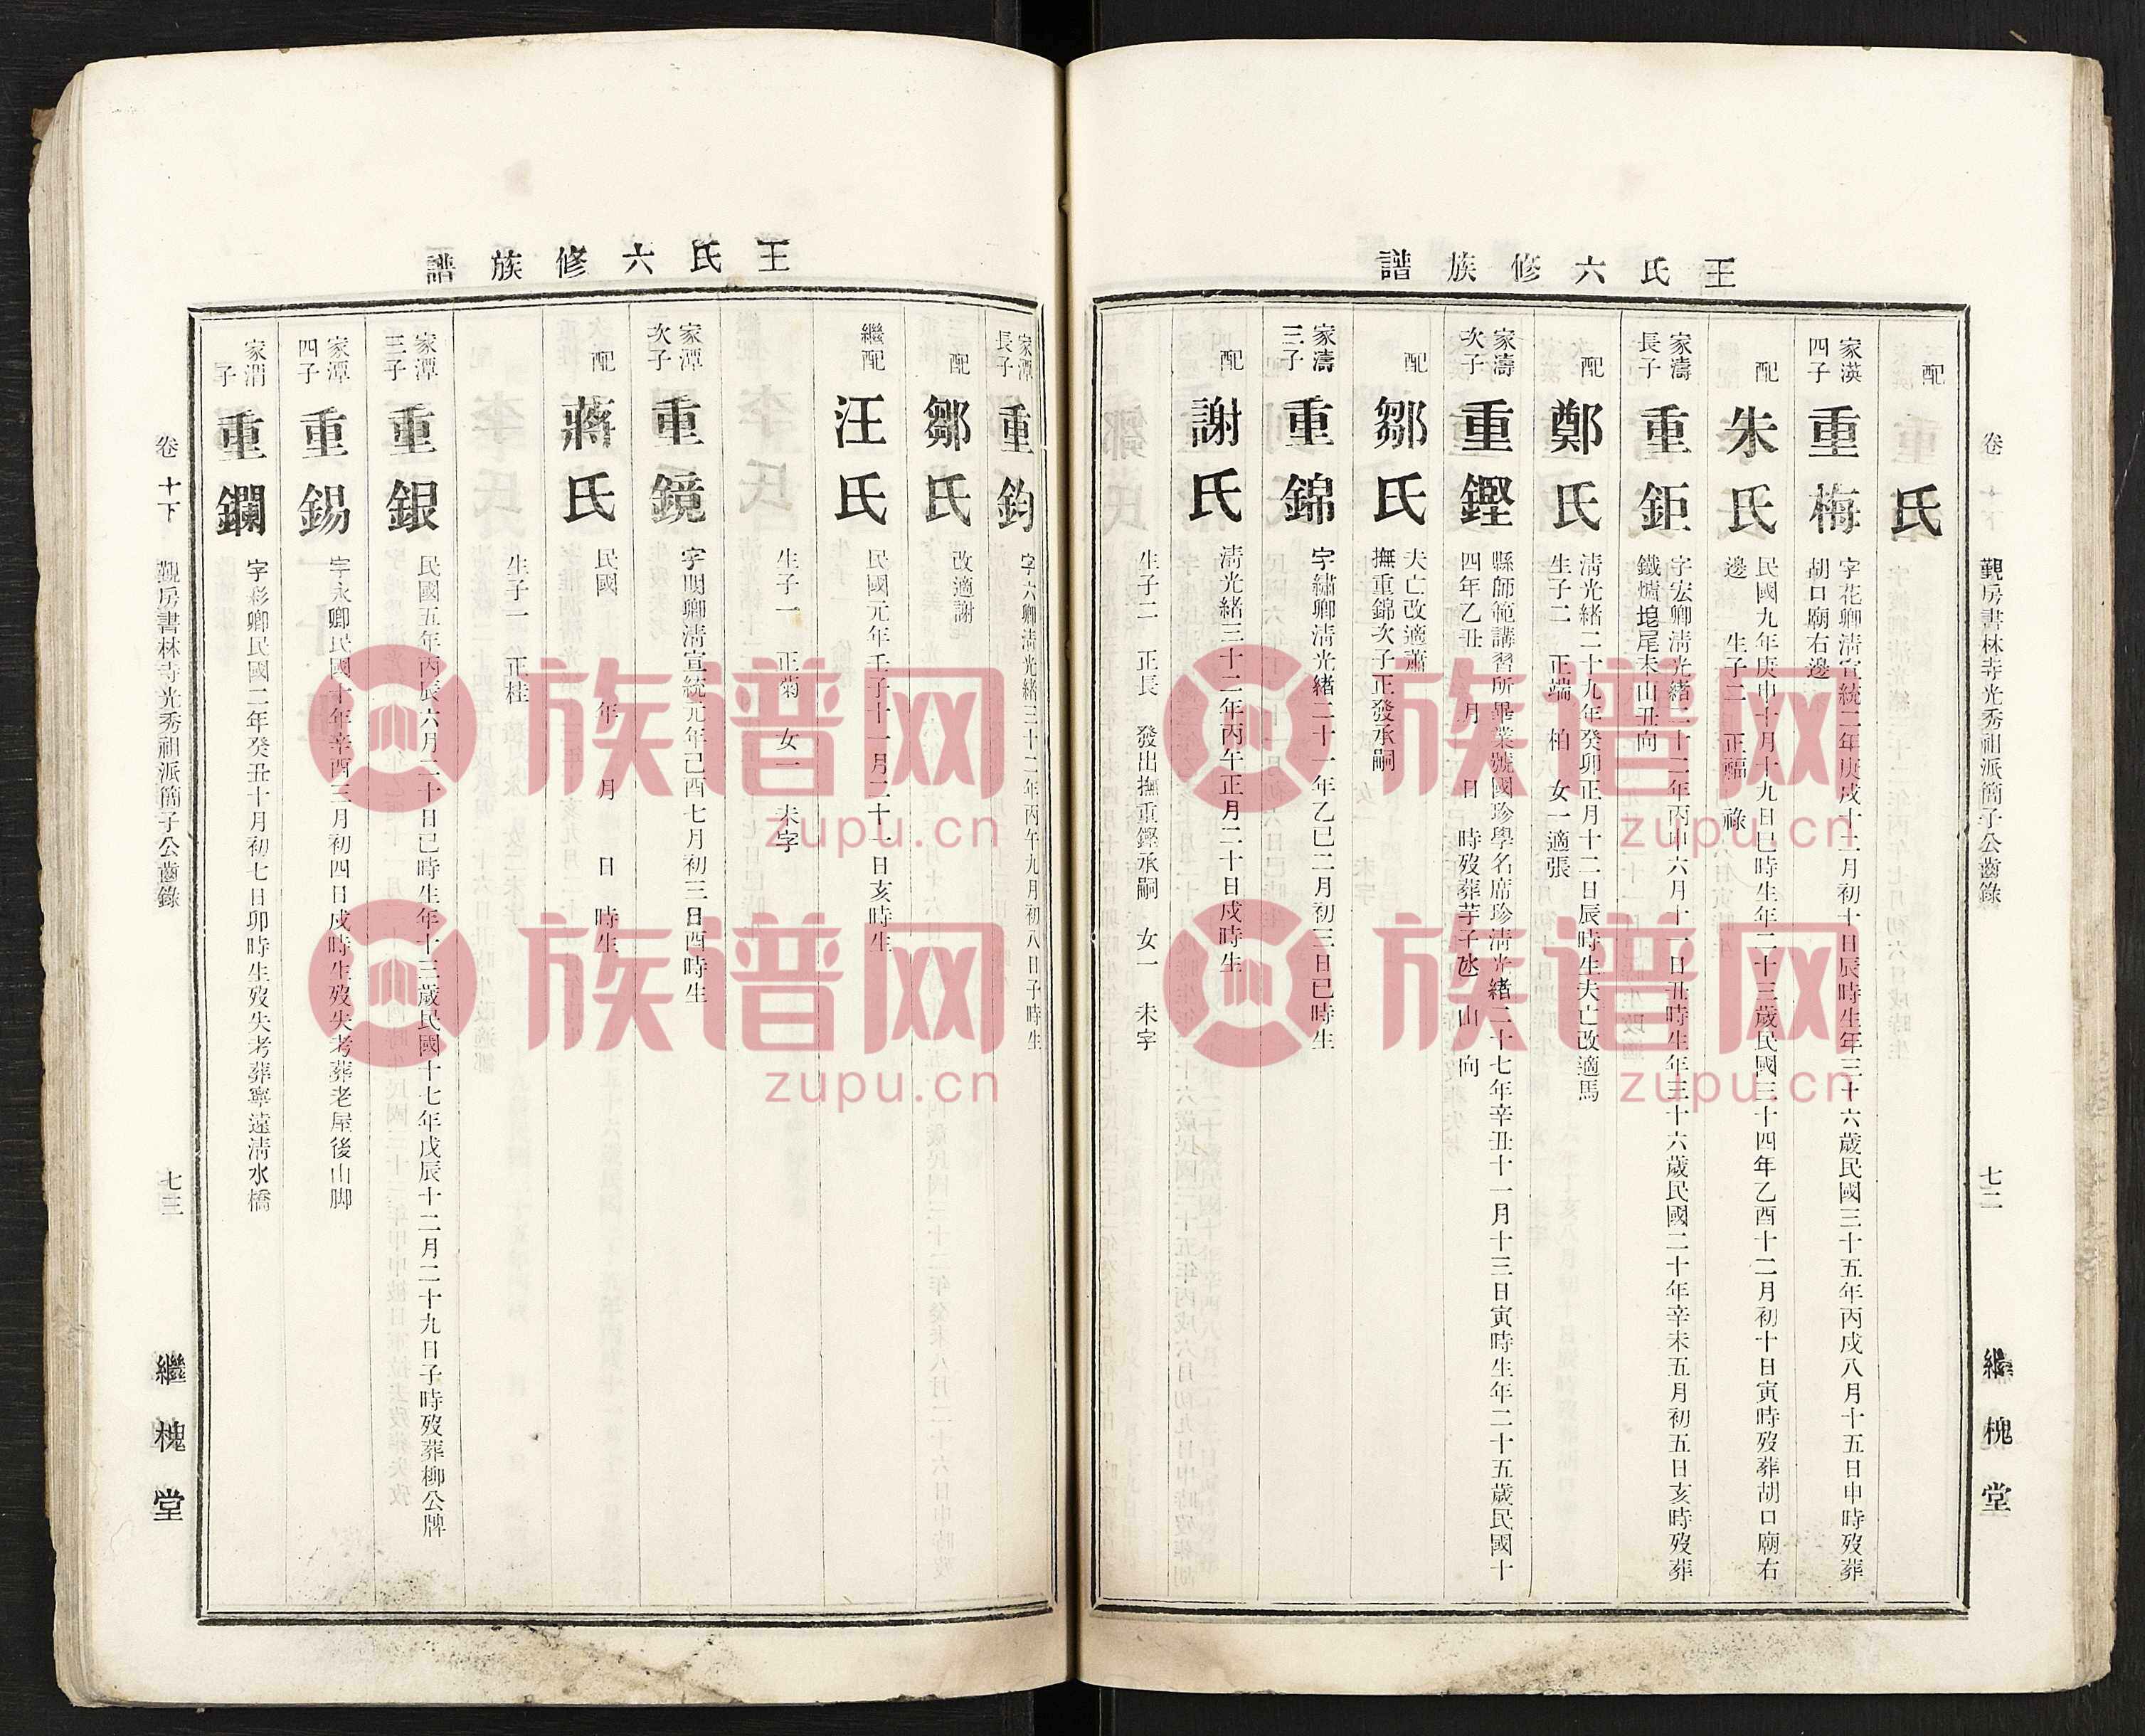 王氏六修族譜
卷十下 覲房書林寺光秀祖派簡子公齒錄 七二 繼槐堂
配 氏
家漢四子 重梅 字花卿清宣統二年庚戌十二月初十日辰時生年三十六歲民國三十五年丙戌八月十五日申時歿葬
胡口廟右邊
配 朱氏 民國九年庚申十月十九日巳時生年二十三歲民國三十四年乙酉十二月初十日寅時歿葬胡口廟右
邊 生子二 正福 祿
家濤長子 重鉅 字宏卿清光緒二十二年丙申六月十二日丑時生年三十六歲民國二十年辛未五月初五日亥時歿葬
鐵爐塅尾未山丑向
配 鄭氏 清光緒二十九年癸卯正月十二日辰時生夫亡改適馬
生子二 正端 柏 女一適張
家濤次子 重鏗 縣師範講習所畢業號國珍學名席珍清光緒二十七年辛丑十一月十三日寅時生年二十五歲民國十
四年乙丑 月 日 時歿葬芋子氹 山 向
配 鄒氏 夫亡改適蕭
撫重錦次子正發承嗣
家濤三子 重錦 字繡卿清光緒二十一年乙巳二月初三日巳時生
配 謝氏 清光緒三十二年丙午正月二十日戌時生
生子二 正長 發出撫重鏗承嗣 女一 未字
王氏六修族譜
家潭長子 重鈞 字六卿清光緒三十二年丙午九月初八日子時生
配 鄒氏 改適謝
繼配 汪氏 民國元年壬子十一月二十一日亥時生
生子一 正菊 女一 未字
家潭次子 重鏡 字明卿清宣統元年己酉七月初三日酉時生
配 蔣氏 民國 年 月 日 時生
生子一 正桂
家潭三子 重銀 民國五年丙辰六月二十日巳時生年十三歲民國十七年戊辰十二月二十九日子時歿葬柳公牌
家潭四子 重錫 字永卿民國十年辛酉三月初四日戌時生歿失考葬老屋後山脚
家渭子 重鑭 字彩卿民國二年癸丑十月初七日卯時生歿失考葬寧遠清水橋
卷十下 覲房書林寺光秀祖派簡子公齒錄 七三 繼槐堂
族谱网
zupu.cn
族谱网
zupu.cn
族谱网
zupu.cn
族谱网
zupu.cn